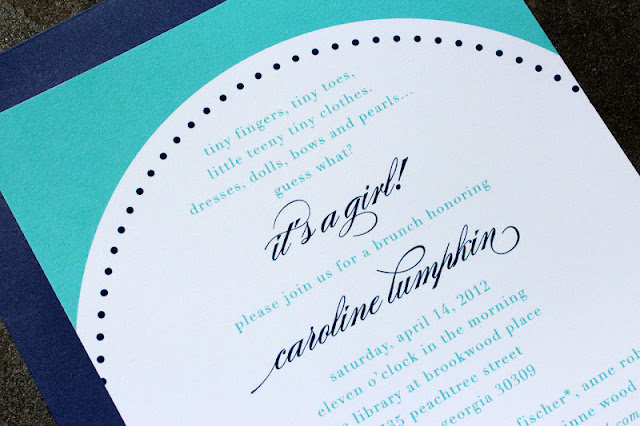 tiny fingers, tiny toes,
little teeny tiny clothes.
dresses, dolls, bows and pearls...
guess what?
it's a girl!
please join us for a brunch honoring
caroline lumpkin
saturday, april 14, 2012
eleven o'clock in the morning
library at brookwood place
peachtree street
georgia 30309
fischer*, anne
wood